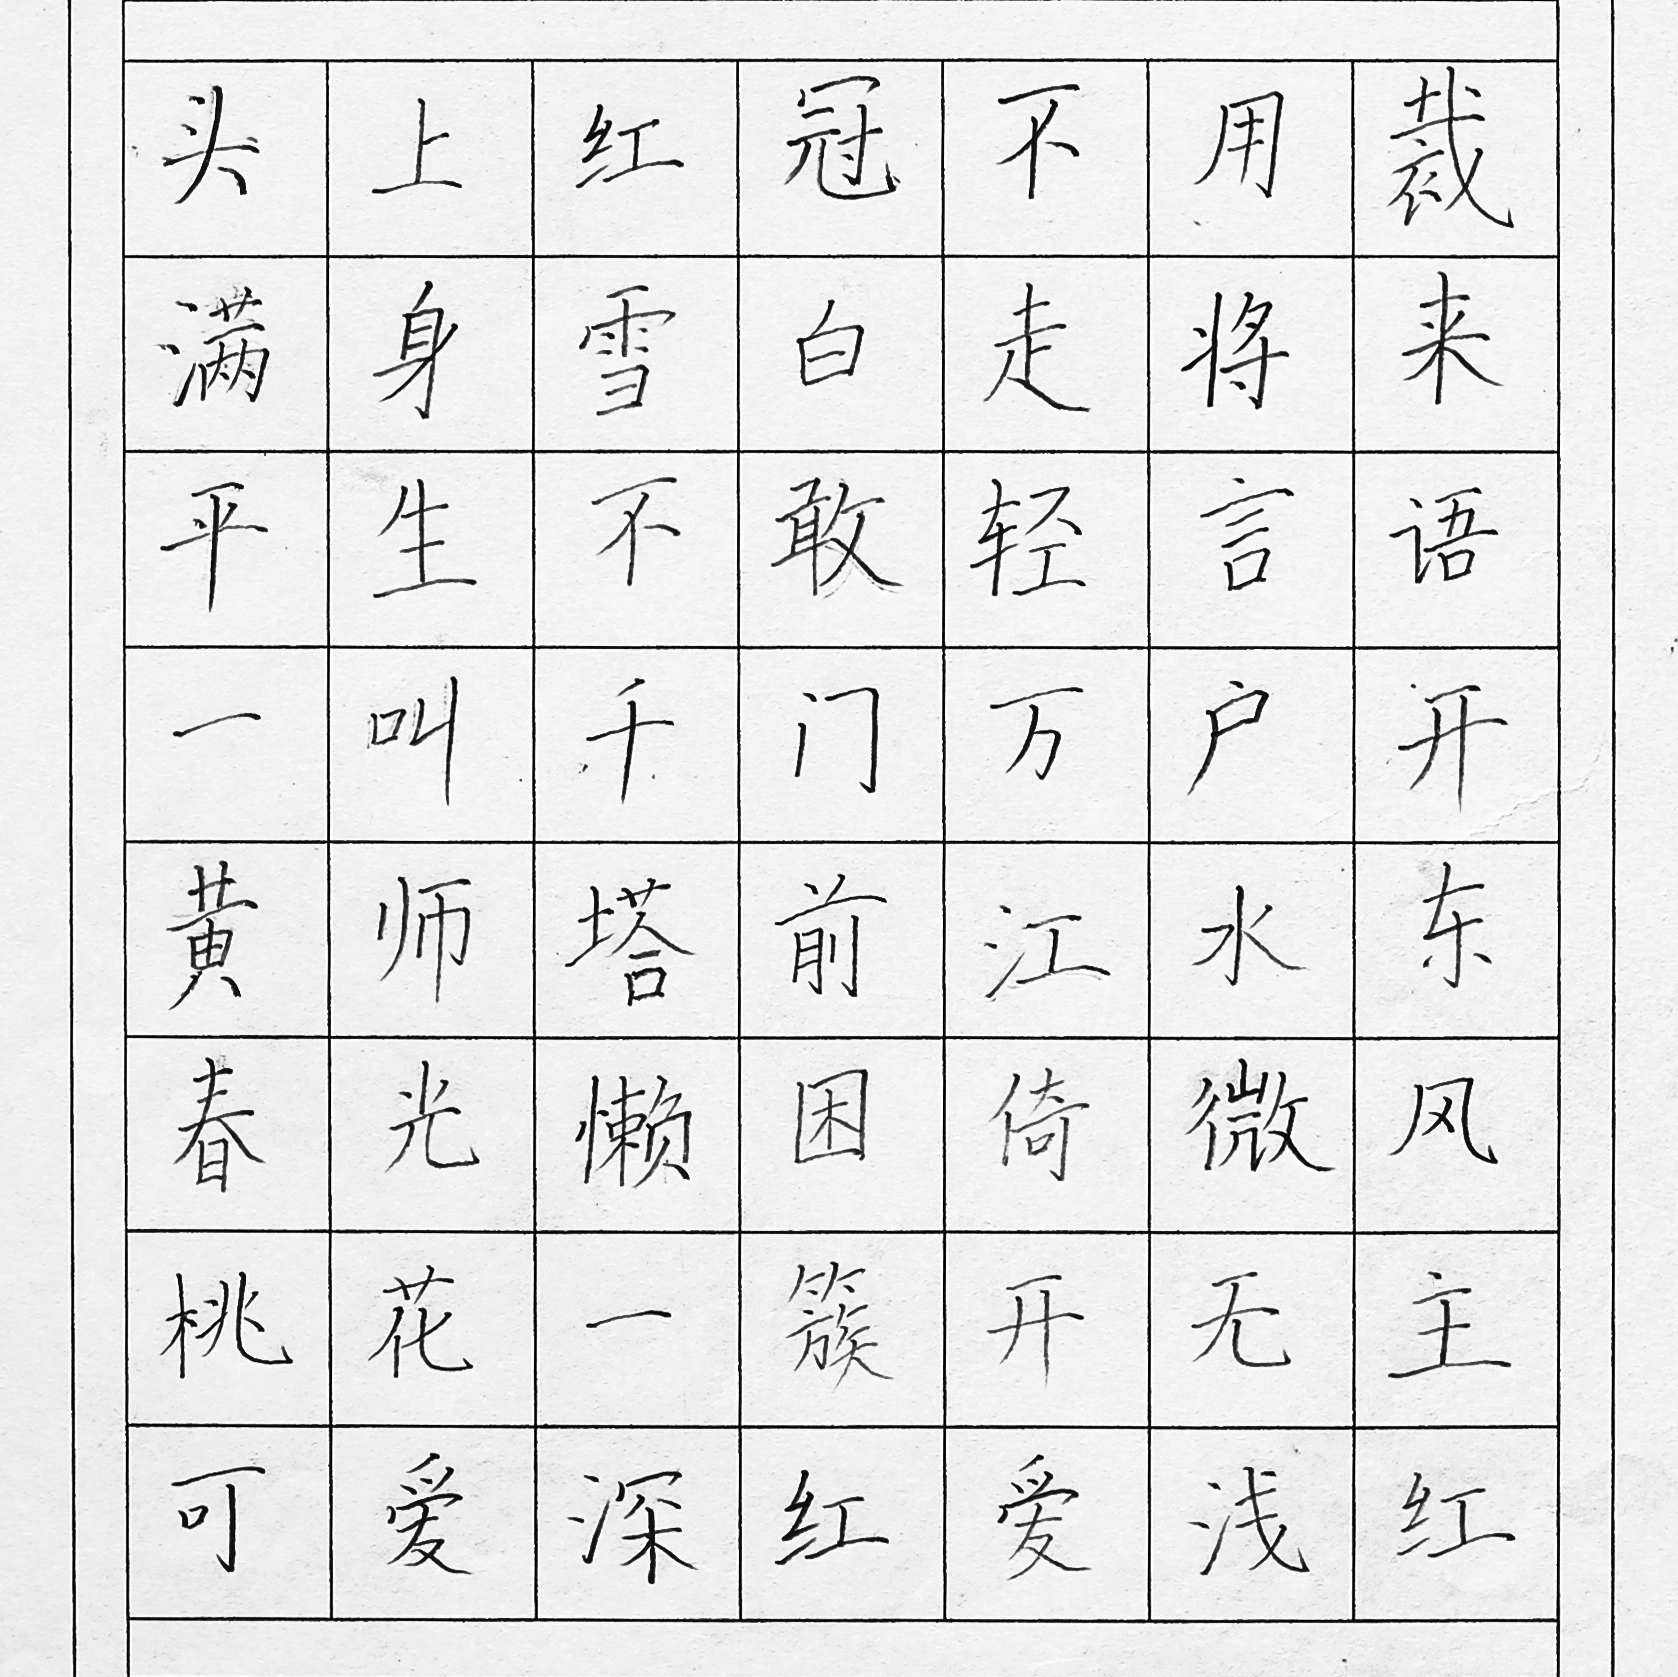 头上红冠不用裁
满身雪白走将来
平生不敢轻言语
一叫千门万户开
黄师塔前江水东
春光懒困倚微风
桃花一簇开无主
可爱深红爱浅红